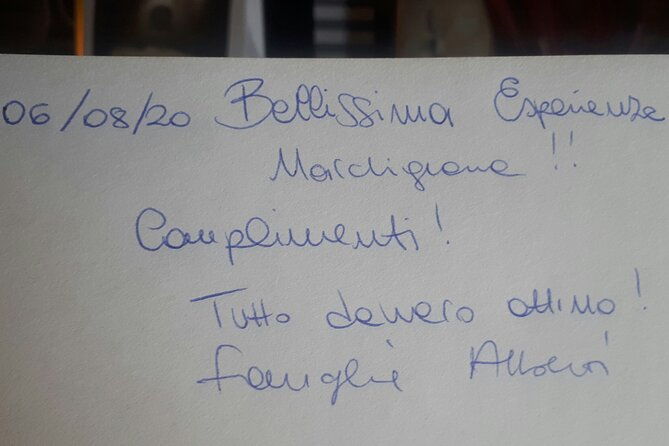 06/08/20 Bellissima Esperienza
Marchigiana!!
Complimenti!
Tutto davvero ottimo!
famiglia